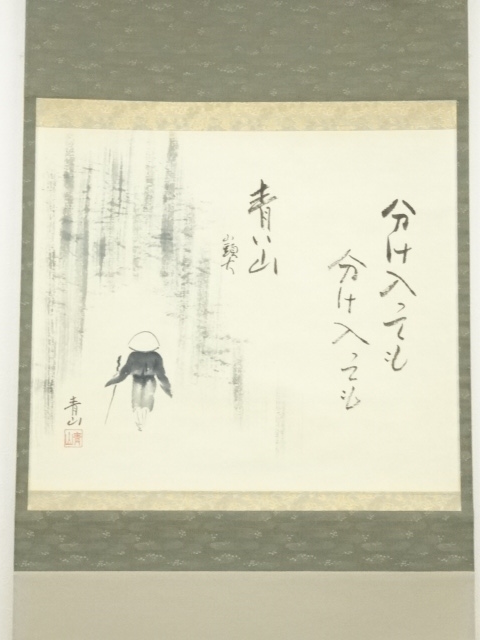 分け入っても
分け入っても
青い山
山頭火
青山